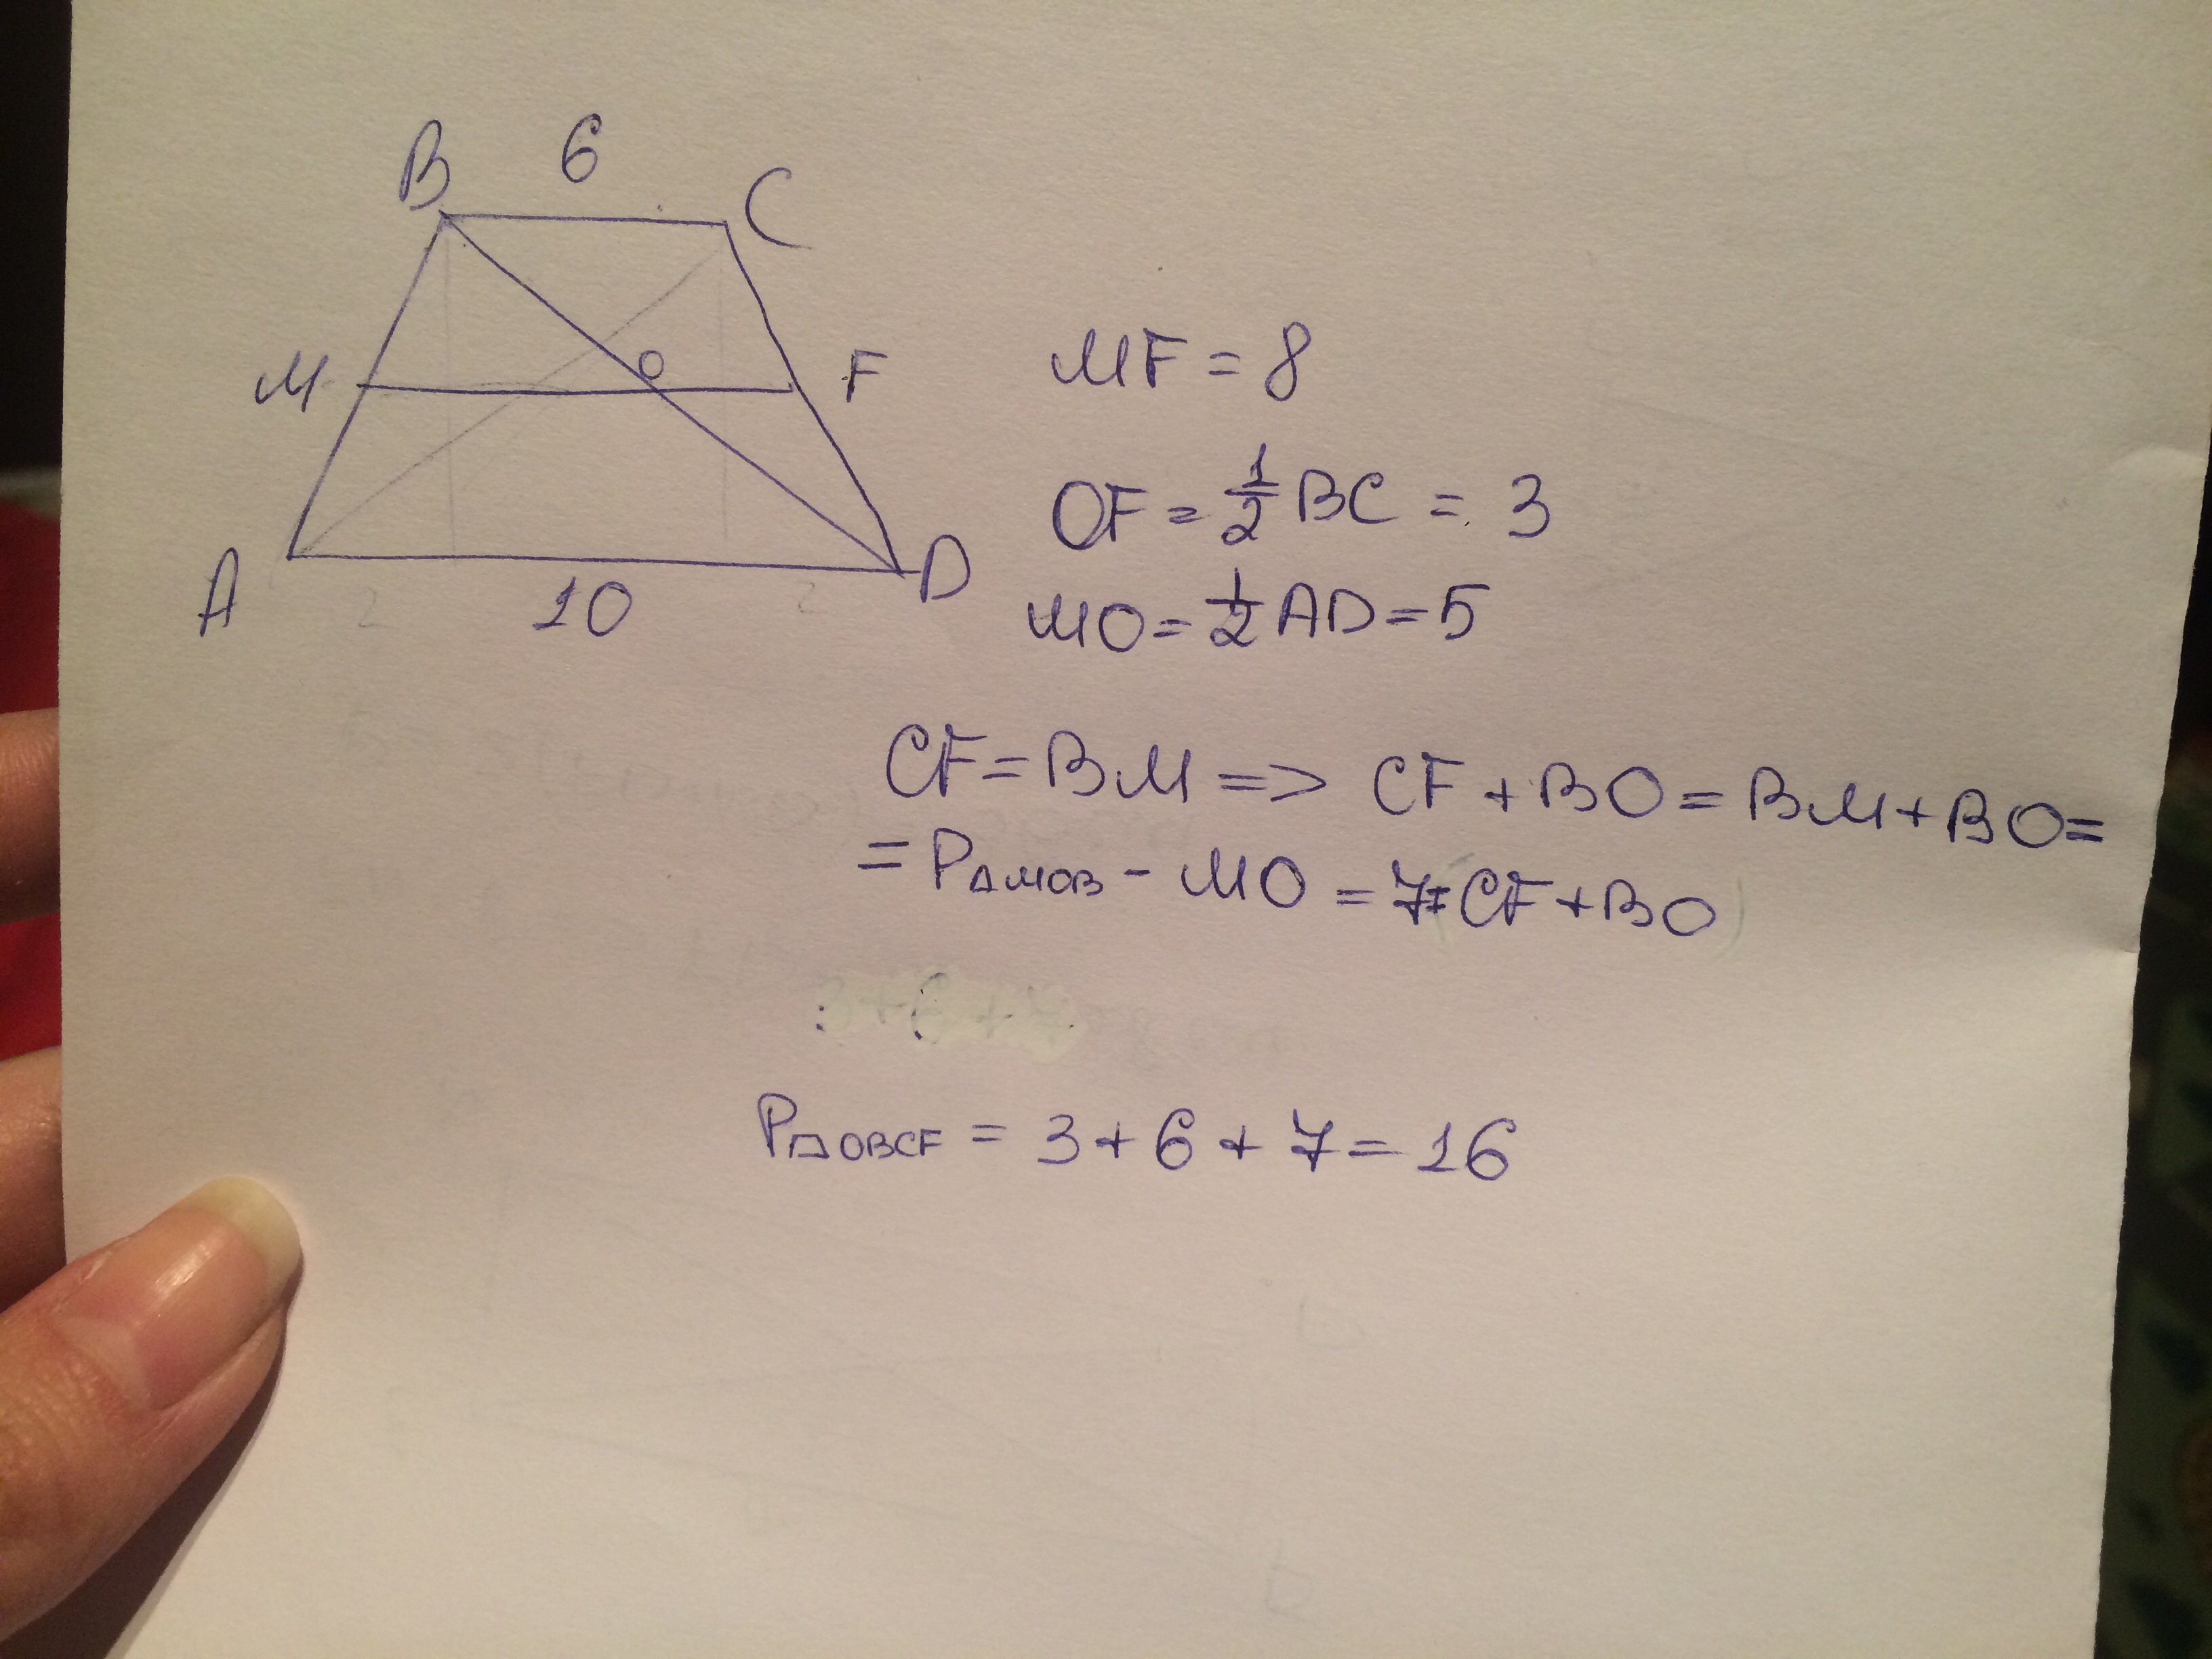 B 6 C
M O F
A 2 10 2 D
MF = 8
OF = 1/2 BC = 3
MO = 1/2 AD = 5
CF = BM => CF + BO = BM + BO =
= P△MOB - MO = 7 = CF + BO
P▱OBCF = 3 + 6 + 7 = 16